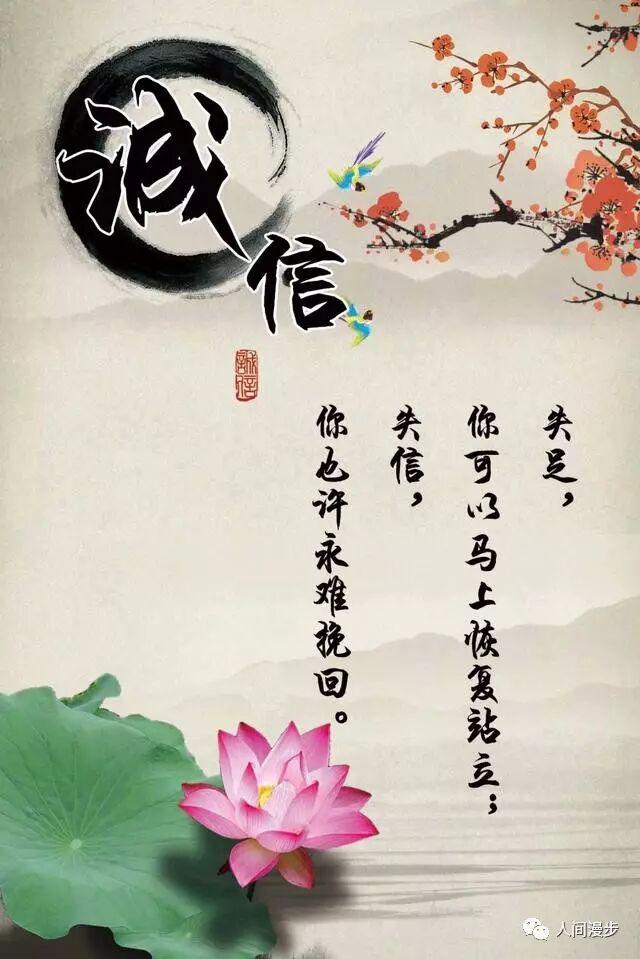 诚信
誠信
失足，
你可以马上恢复站立；
失信，
你也许永难挽回。
人间漫步